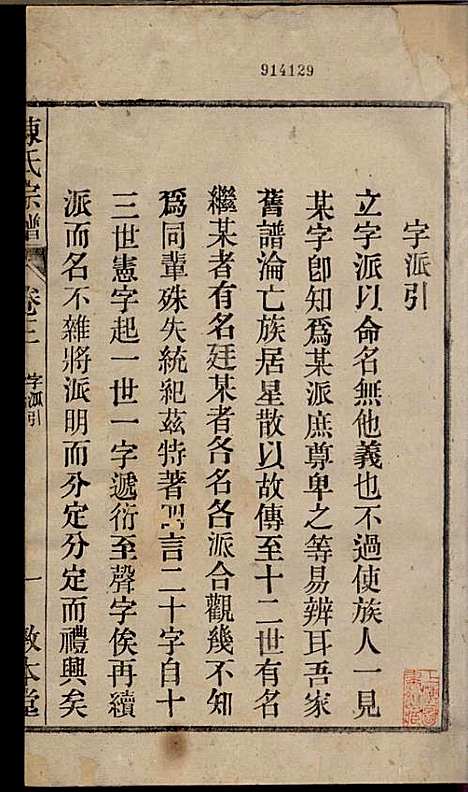 914129
字派引
立字派以命名無他義也不過使族人一見
某字卽知爲某派庶尊卑之等易辨耳吾家
舊譜淪亡族居星散以故傳至十二世有名
繼某者有名廷某者各名各派合觀幾不知
爲同輩殊失統紀茲特著言二十字自十
三世憲字起一世一字遞衍至聲字俟再續
派而名不雜將派明而分定分定而禮興矣
陳氏宗譜
卷三
字派引
一
敦本堂